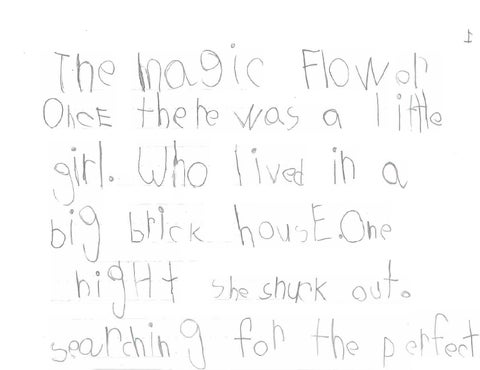 1
The magic Flower
OncE there was a little
girl. Who lived in a
big brick housE.One
night she shuck out.
searching for the perfect